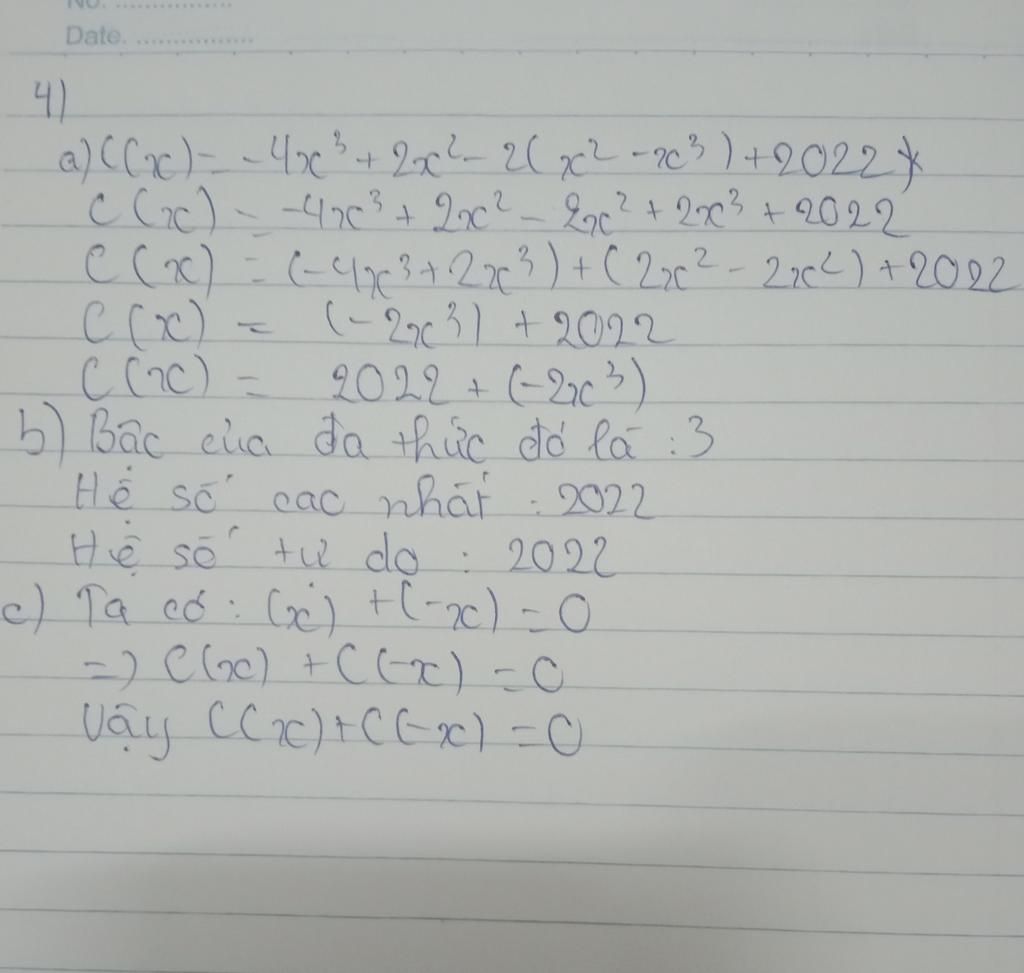 No. ................
Date. ................
4)
a) C(x) = -4x³ + 2x² - 2(x² - x³) + 2022
C(x) = -4x³ + 2x² - 2x² + 2x³ + 2022
C(x) = (-4x³ + 2x³) + (2x² - 2x²) + 2022
C(x) = (-2x³) + 2022
C(x) = 2022 + (-2x³)
b) Bậc của đa thức đó là : 3
Hệ số cac nhất : 2022
Hệ số tự do : 2022
c) Ta có : (x) + (-x) = 0
=> C(x) + C(-x) = 0
Vậy C(x) + C(-x) = 0